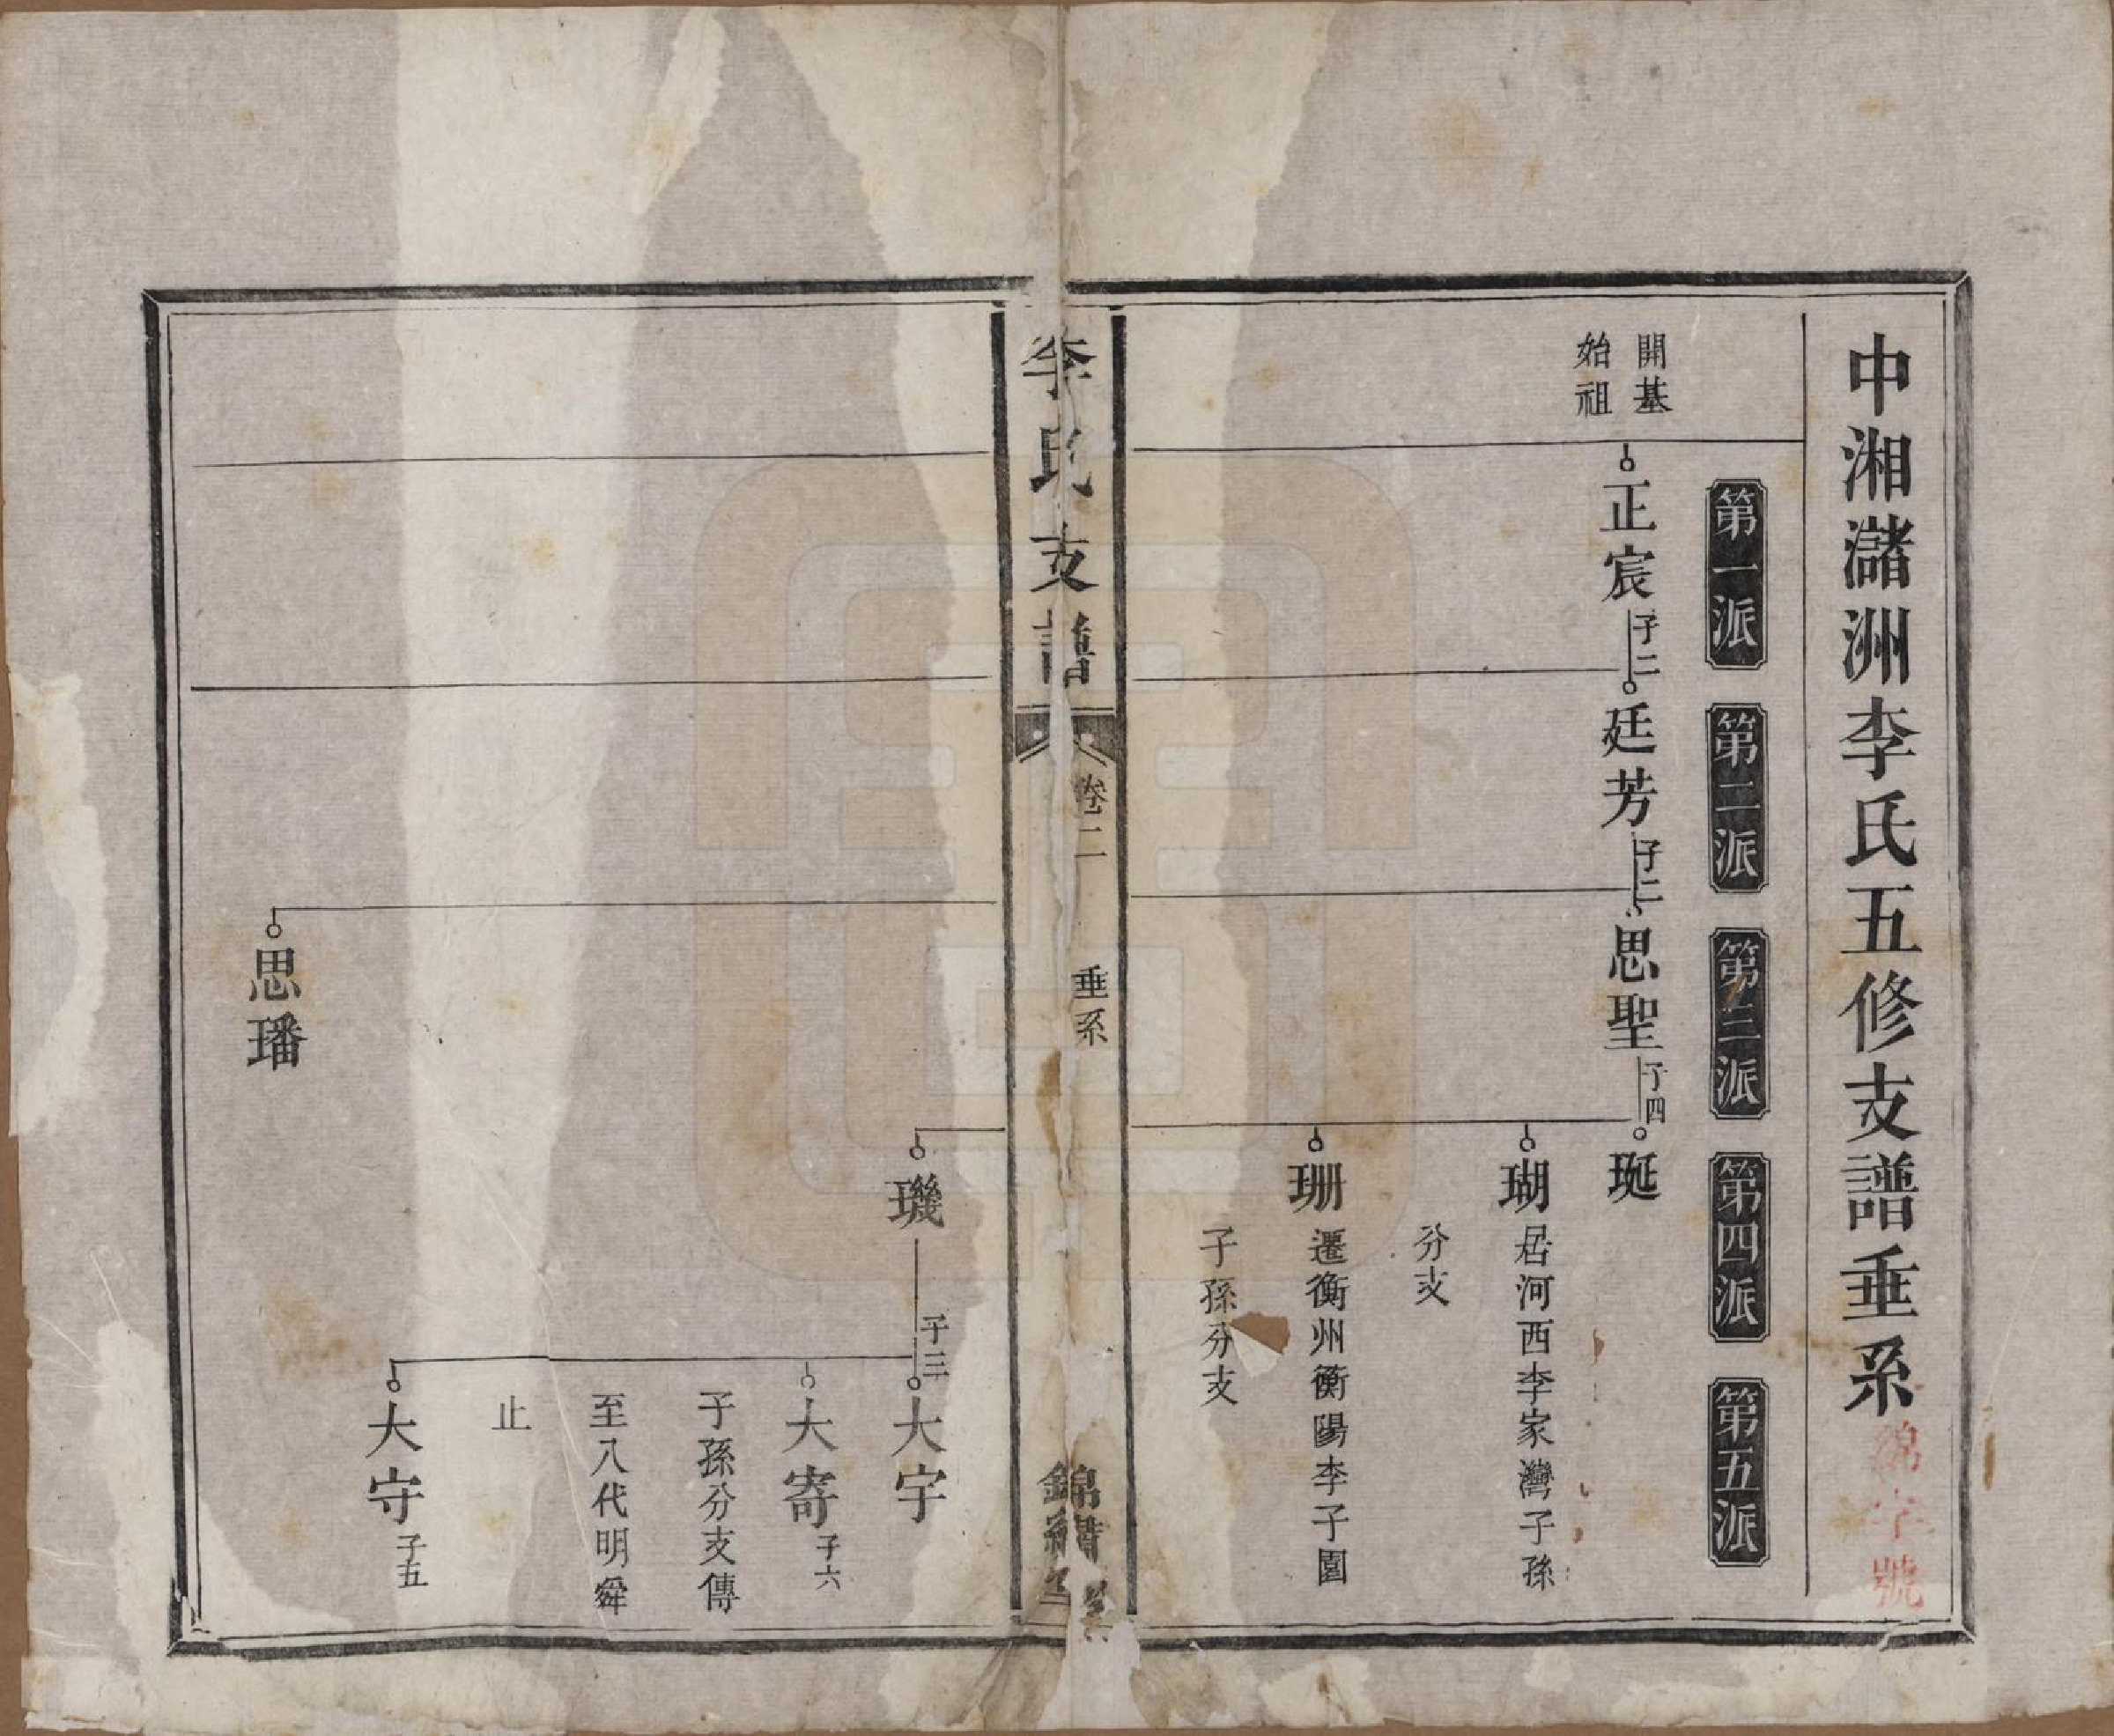 中湘瀦洲李氏五修支譜垂系
綿字號
第一派
第二派
第三派
第四派
第五派
開基
始祖
正宸
子二
廷芳
子二
思聖
子四
珽
瑚
居河西李家灣子孫
分支
珊
遷衡州衡陽李子園
子孫分支
李氏支譜
卷二
垂系
錦繡堂
璣
子三
大宇
大寄
子六
子孫分支傳
至八代明舜
止
大守
子五
思璠